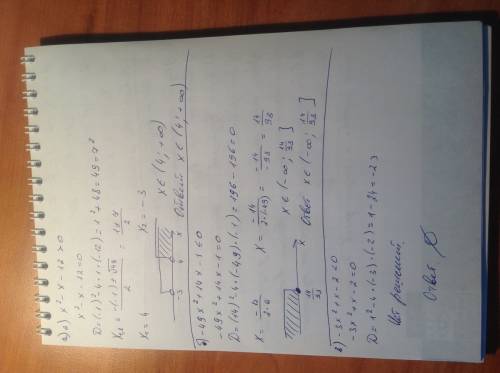 2) а) x² - x - 12 > 0
x² - x - 12 = 0
D = (1)² - 4 · 1 · (-12) = 1² + 48 = 49 = 7²
x₁,₂ = -(-1) ± √49 / 2 = 1 ± 7 / 2
x₁ = 4 x₂ = -3
-3 4 x
x ∈ (4; +∞)
Ответ: x ∈ (4; +∞)
б) -49x² + 14x - 1 ≤ 0
-49x² + 14x - 1 = 0
D = (14)² - 4 · (-49) · (-1) = 196 - 196 = 0
x = -14 / 2·(-49) = -14 / -98 = 14 / 98
14/98 x
x ∈ (-∞; 14/98]
Ответ x ∈ (-∞; 14/98]
в) -3x² + x - 2 < 0
-3x² + x - 2 = 0
D = 1² - 4 · (-3) · (-2) = 1 - 24 = -23
Нет решений
Ответ ∅